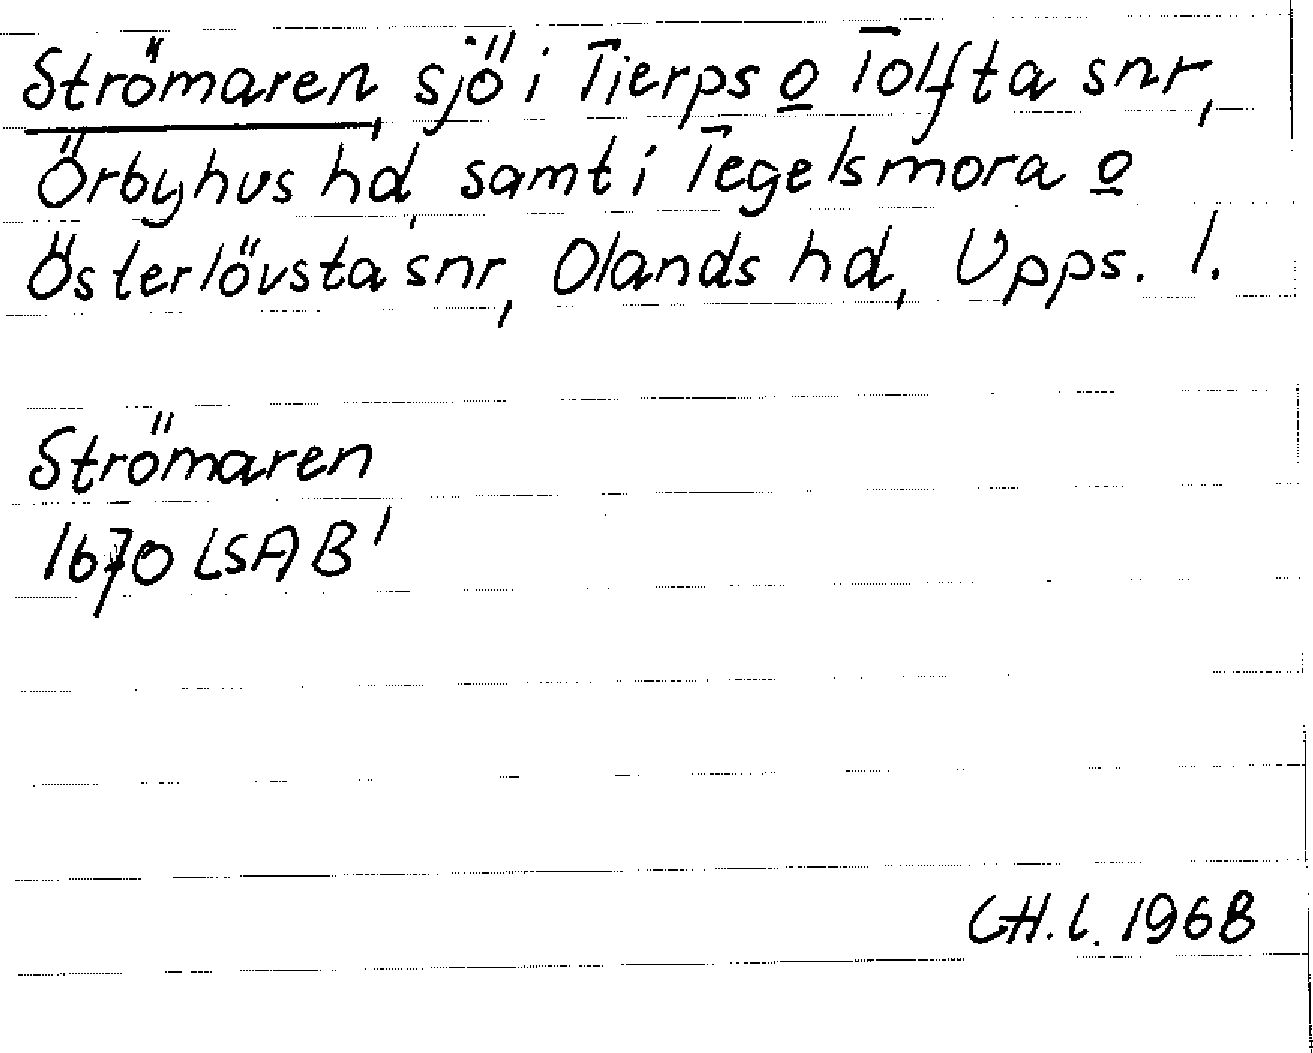 Strömaren, sjö i Tierps o Tolfta snr,
Örbyhus hd, samt i Tegelsmora o
Österlövsta snr, Olands hd, Upps. l.
Strömaren
1670 LSA B1
CH. l. 1968